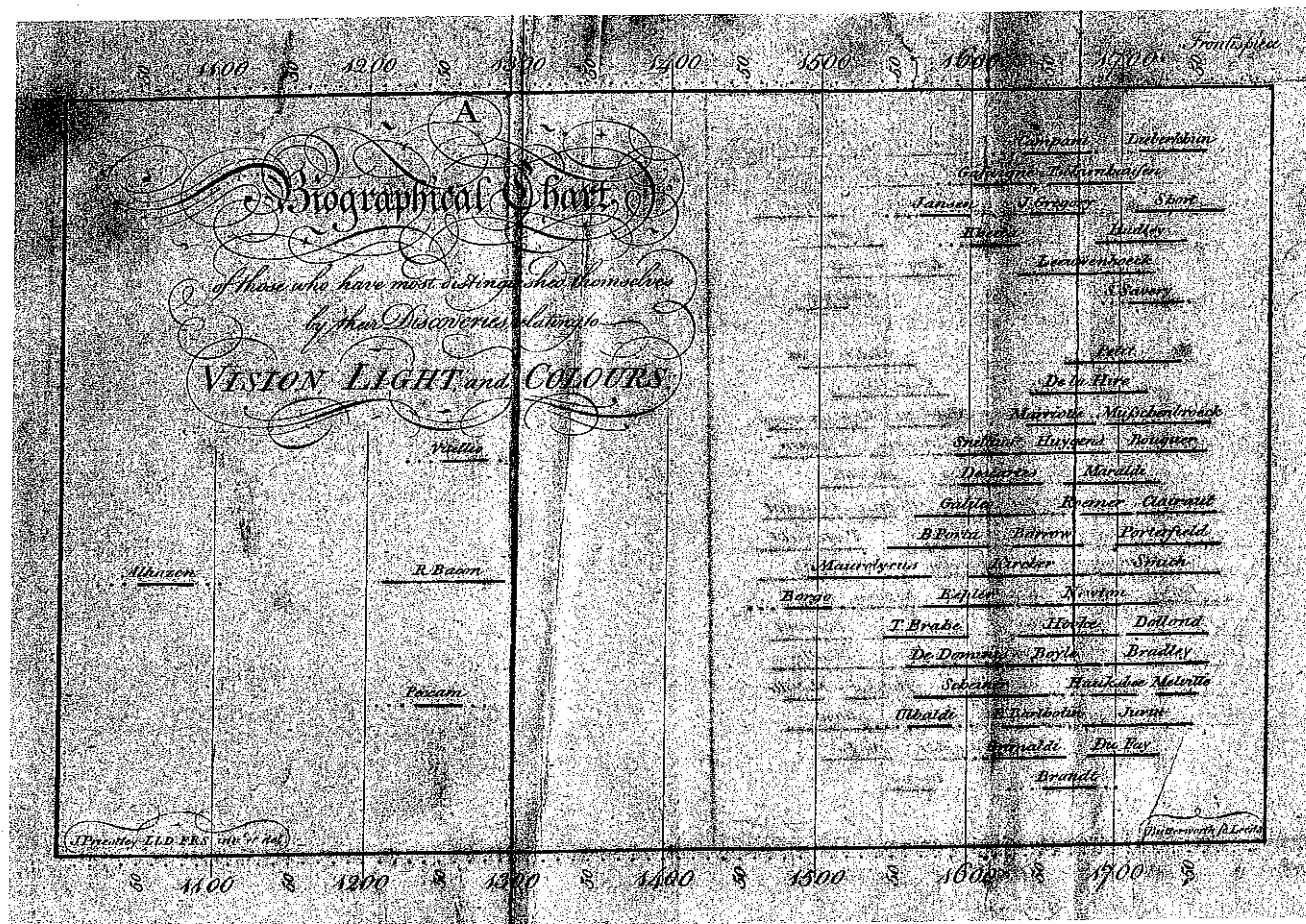 Frontispiece
50 1100 50 1200 50 1300 50 1400 50 1500 50 1600 50 1700 50
A
Biographical Chart,
of those who have most distinguished themselves
by their Discoveries relating to
VISION LIGHT and COLOURS.
Campani Lieberkhun
Tschirnhausen
Jansen J. Gregory Short
Rheita Hadley
Leeuwenhoeck
S. Savery
Petit
De la Hire
Marriotte Muſschenbroeck
Vitellio Snellius Huygens Bouguer
Descartes Maraldi
Galileo Roemer Clairaut
B. Porta Barrow Porterfield
Alhazen R. Bacon Maurolycus Kircher Smith
Borgo Kepler Newton
T. Brahe Hooke Dollond
De Dominis Boyle Bradley
Peccam Scheiner Hauksbee Melville
Ubaldi E. Bartholin Jurin
Grimaldi Du Fay
Brandt
J. Priestley LL.D. F.R.S. inv.t et del.
Butterworth sc. Leeds
50 1100 50 1200 50 1300 50 1400 50 1500 50 1600 50 1700 50